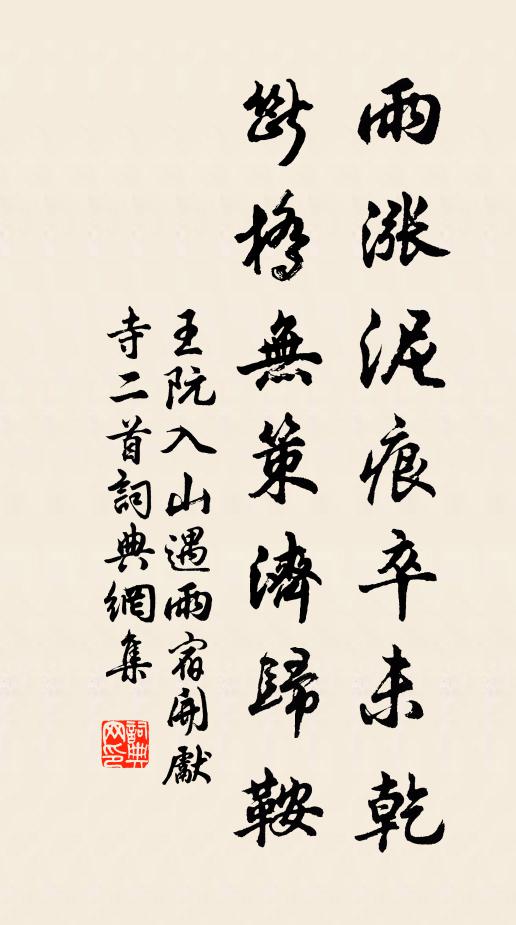 雨漲泥痕卒未乾
斷橋無策濟歸鞍
王阮入山遇雨宿開獻
寺二首詞典網集
詞典
网印